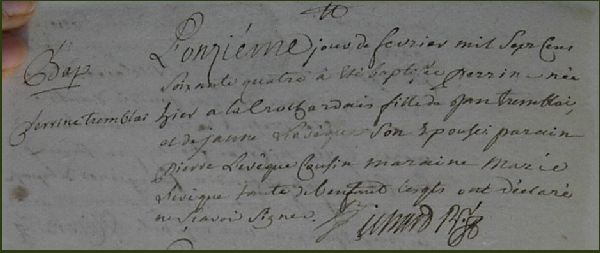 Bap.
perrine tremblai
L'onziéme jour de fevrier mil Sept Cens
Soixante quatre à été baptisée perrine née
hier a la Crochardais fille de Jan tremblai,
et de janne Levéque Son Epouse parain
pierre Levéque Cousin maraine Marie
Levéque tante de l'enfant lesqls ont declaré
ne Scavoir Signer.